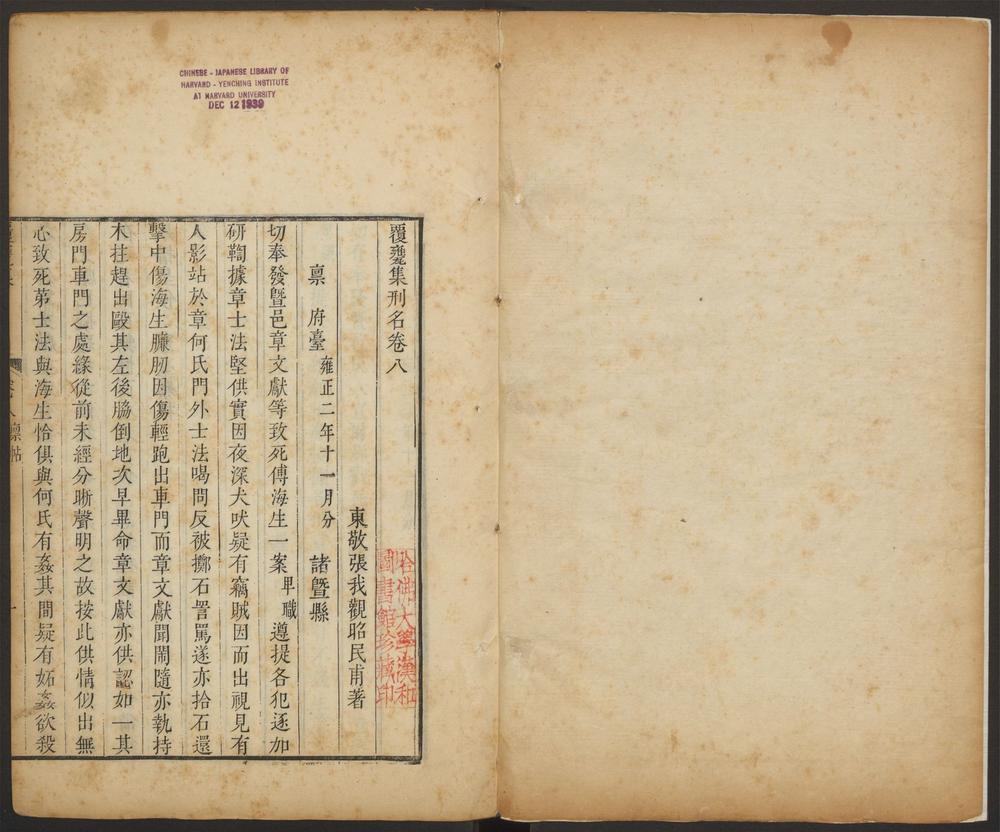 CHINESE - JAPANESE LIBRARY OF
HARVARD - YENCHING INSTITUTE
AT HARVARD UNIVERSITY
DEC 12 1939
哈佛大學漢和
圖書館珍藏印
覆甕集刑名卷八
東敬張我觀昭民甫著
稟 府臺 雍正二年十一月分 諸暨縣
切奉發暨邑章文獻等致死傅海生一案卑職遵提各犯逐加
研鞫據章士法堅供實因夜深犬吠疑有竊賊因而出視見有
人影站於章何氏門外士法喝問反被擲石詈罵遂亦拾石還
擊中傷海生臁肕因傷輕跑出車門而章文獻聞鬧隨亦執持
木拄趕出毆其左後脇倒地次早畢命章文獻亦供認如一其
房門車門之處緣從前未經分晰聲明之故按此供情似出無
心致死第士法與海生恰俱與何氏有姦其間疑有妬姦欲殺
卷八稟帖